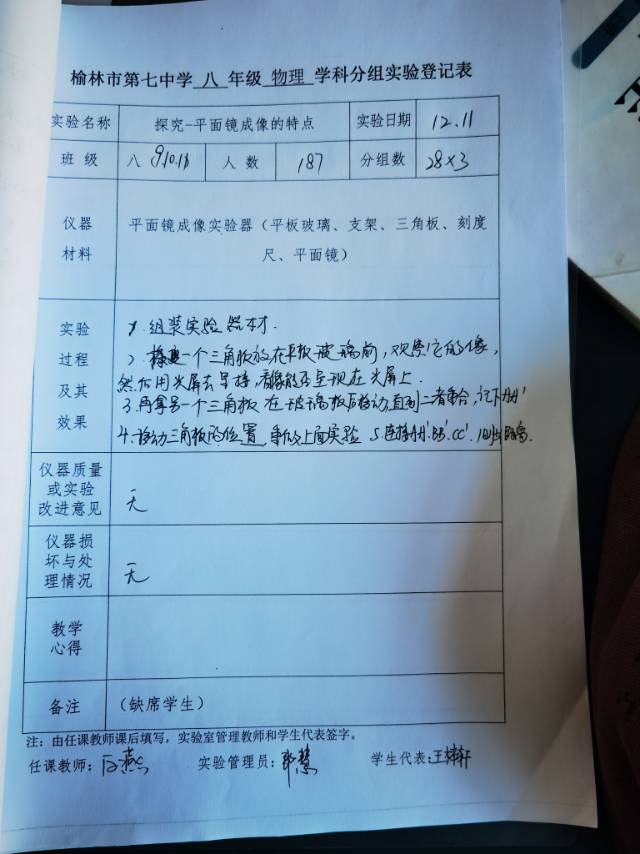 榆林市第七中学 八 年级 物理 学科分组实验登记表
实验名称 探究-平面镜成像的特点 实验日期 12.11
班 级 八 9.10.11 人 数 187 分组数 28×3
仪器
材料
平面镜成像实验器（平板玻璃、支架、三角板、刻度
尺、平面镜）
实验
过程
及其
效果
1.组装实验器材.
2.一个三角板放在平板玻璃前,观察它的像,
然后用光屏去寻找,看像能否呈现在光屏上.
3.再拿另一个三角板在玻璃板后移动,直到二者重合,记下AA'
4.移动三角板的位置,重做上面实验 5.连接AA'.BB'.CC'.
仪器质量
或实验
改进意见
无
仪器损
坏与处
理情况
无
教学
心得
备注 （缺席学生）
注：由任课教师课后填写，实验室管理教师和学生代表签字。
任课教师： 实验管理员： 学生代表：